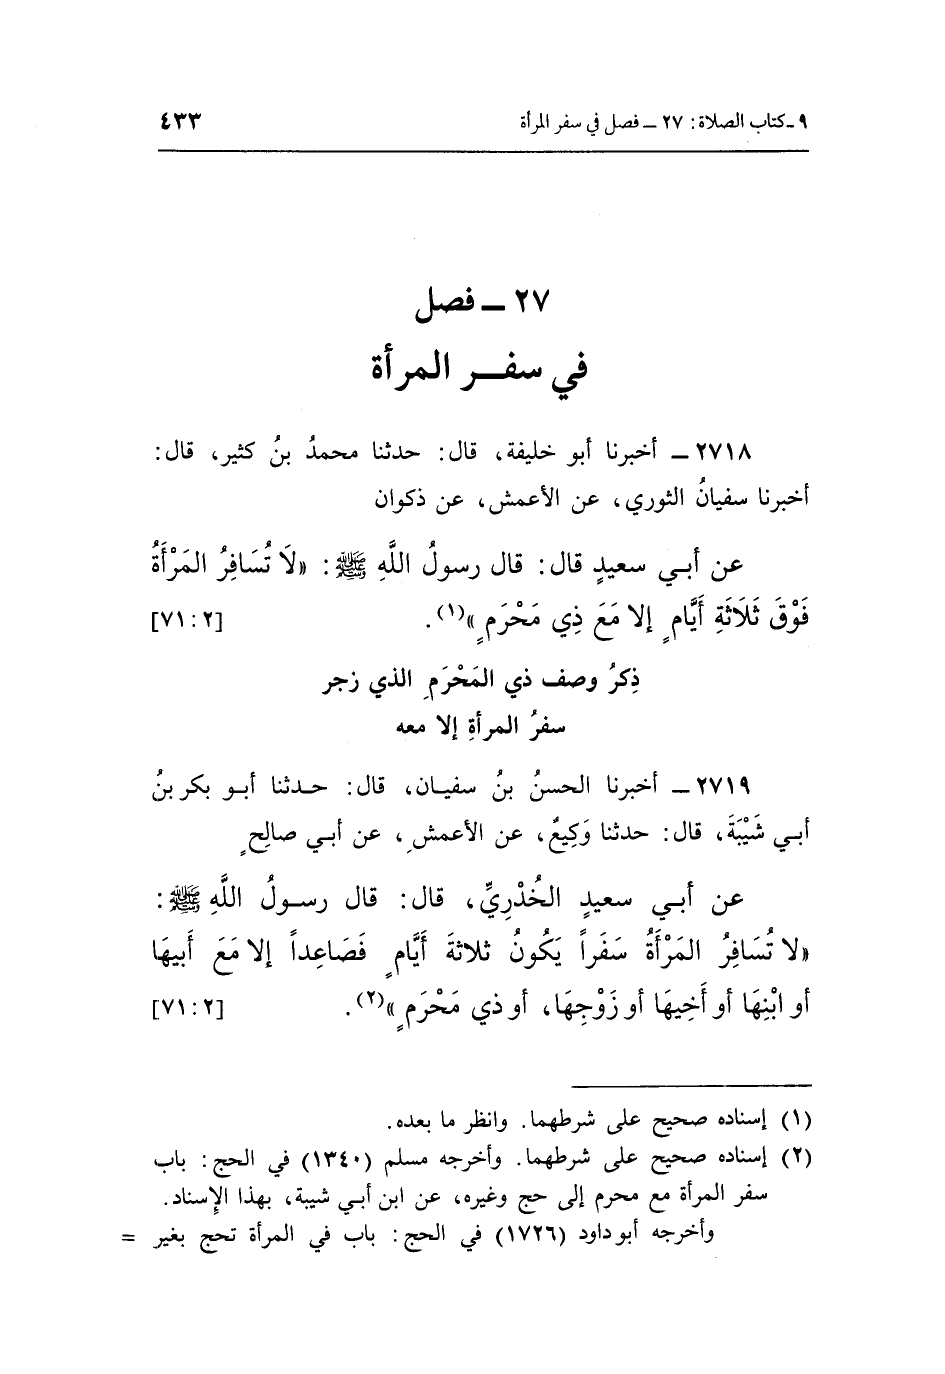 ٩ ـ كتاب الصلاة: ٢٧ ــ فصل في سفر المرأة ٤٣٣
٢٧ ــ فصل
في سفـــر المرأة
٢٧١٨ ــ أخبرنا أبو خليفة، قال: حدثنا محمدُ بنُ كثير، قال:
أخبرنا سفيانُ الثوري، عن الأعمش، عن ذكوان
عن أبـي سعيدٍ قال: قال رسولُ اللَّهِ ﷺ: «لَا تُسَافِرُ المَرْأَةُ
فَوْقَ ثَلَاثَةِ أَيَّامٍ إلا مَعَ ذِي مَحْرَمٍ»(١). [٢ : ٧١]
ذِكرُ وصف ذي المَحْرَمِ الذي زجر
سفرُ المرأةِ إلا معه
٢٧١٩ ــ أخبرنا الحسنُ بنُ سفيـان، قال: حـدثنا أبـو بكر بنُ
أبـي شَيْبَةَ، قال: حدثنا وَكِيعٌ، عن الأعمشِ، عن أبـي صالِحٍ
عن أبـي سعيدٍ الخُدْرِيِّ، قال: قال رسـولُ اللَّهِ ﷺ:
«لا تُسَافِرُ المَرْأَةُ سَفَراً يَكُونُ ثلاثةَ أَيَّامٍ فَصَاعِداً إلا مَعَ أَبيهَا
أو ابْنِهَا أو أَخِيهَا أو زَوْجِهَا، أو ذي مَحْرَمٍ»(٢). [٢ : ٧١]
(١) إسناده صحيح على شرطهما. وانظر ما بعده.
(٢) إسناده صحيح على شرطهما. وأخرجه مسلم (١٣٤٠) في الحج: باب
سفر المرأة مع محرم إلى حج وغيره، عن ابن أبـي شيبة، بهذا الإسناد.
وأخرجه أبو داود (١٧٢٦) في الحج: باب في المرأة تحج بغير =